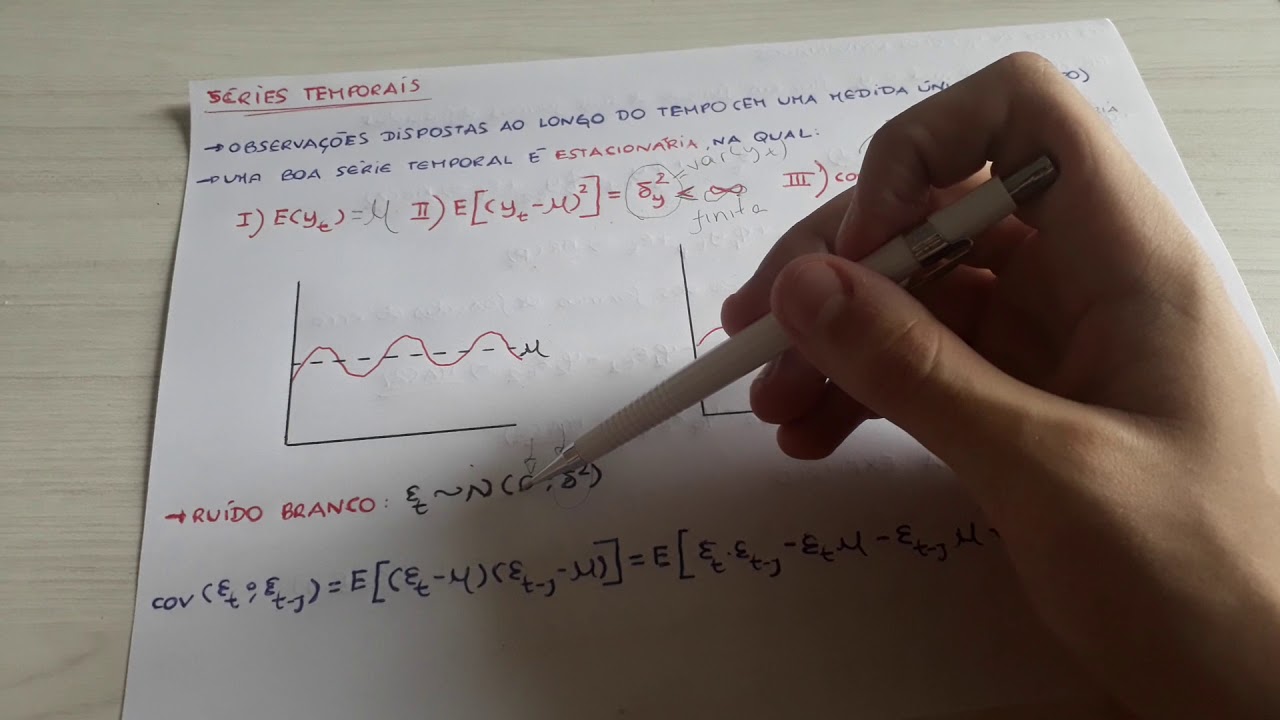 SÉRIES TEMPORAIS
→ OBSERVAÇÕES DISPOSTAS AO LONGO DO TEMPO (EM UMA MEDIDA
→ UMA BOA SÉRIE TEMPORAL É ESTACIONÁRIA, NA QUAL:
I) E(y_t) = μ II) E[(y_t - μ)²] = σ²_y < ∞ III)
= var(y_t)
finita
μ
→ RUÍDO BRANCO: ε_t ~ N( ; σ²)
COV (ε_t ; ε_t-j) = E[(ε_t - μ)(ε_t-j - μ)] = E[ε_t . ε_t-j - ε_t μ - ε_t-j μ